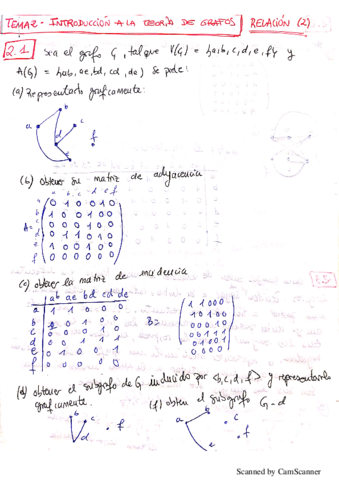 TEMA 2 - INTRODUCCIÓN A LA TEORÍA DE GRAFOS / RELACIÓN (2)
2.1 sea el grafo G, tal que V(G) = {a,b,c,d,e,f} y
A(G) = {ab, ae, bd, cd, de} se pide:
(a) Representarlo gráficamente:
b
a c
d f
e
(b) obtener su matriz de adyacencia
a b c d e f
a 0 1 0 0 1 0
b 1 0 0 1 0 0
A= c 0 0 0 1 0 0
d 0 1 1 0 1 0
e 1 0 0 1 0 0
f 0 0 0 0 0 0
(c) obtener la matriz de incidencia
ab ae bd cd de
a 1 1 0 0 0
b 1 0 1 0 0
c 0 0 0 1 0
d 0 0 1 1 1
e 0 1 0 0 1
f 0 0 0 0 0
B=
1 1 0 0 0
1 0 1 0 0
0 0 0 1 0
0 0 1 1 1
0 1 0 0 1
0 0 0 0
(d) obtener el subgrafo de G inducido por {b,c,d,f} y representarlo
gráficamente.
b c f
d
(f) obten el subgrafo G-d
a c
f
e
Scanned by CamScanner